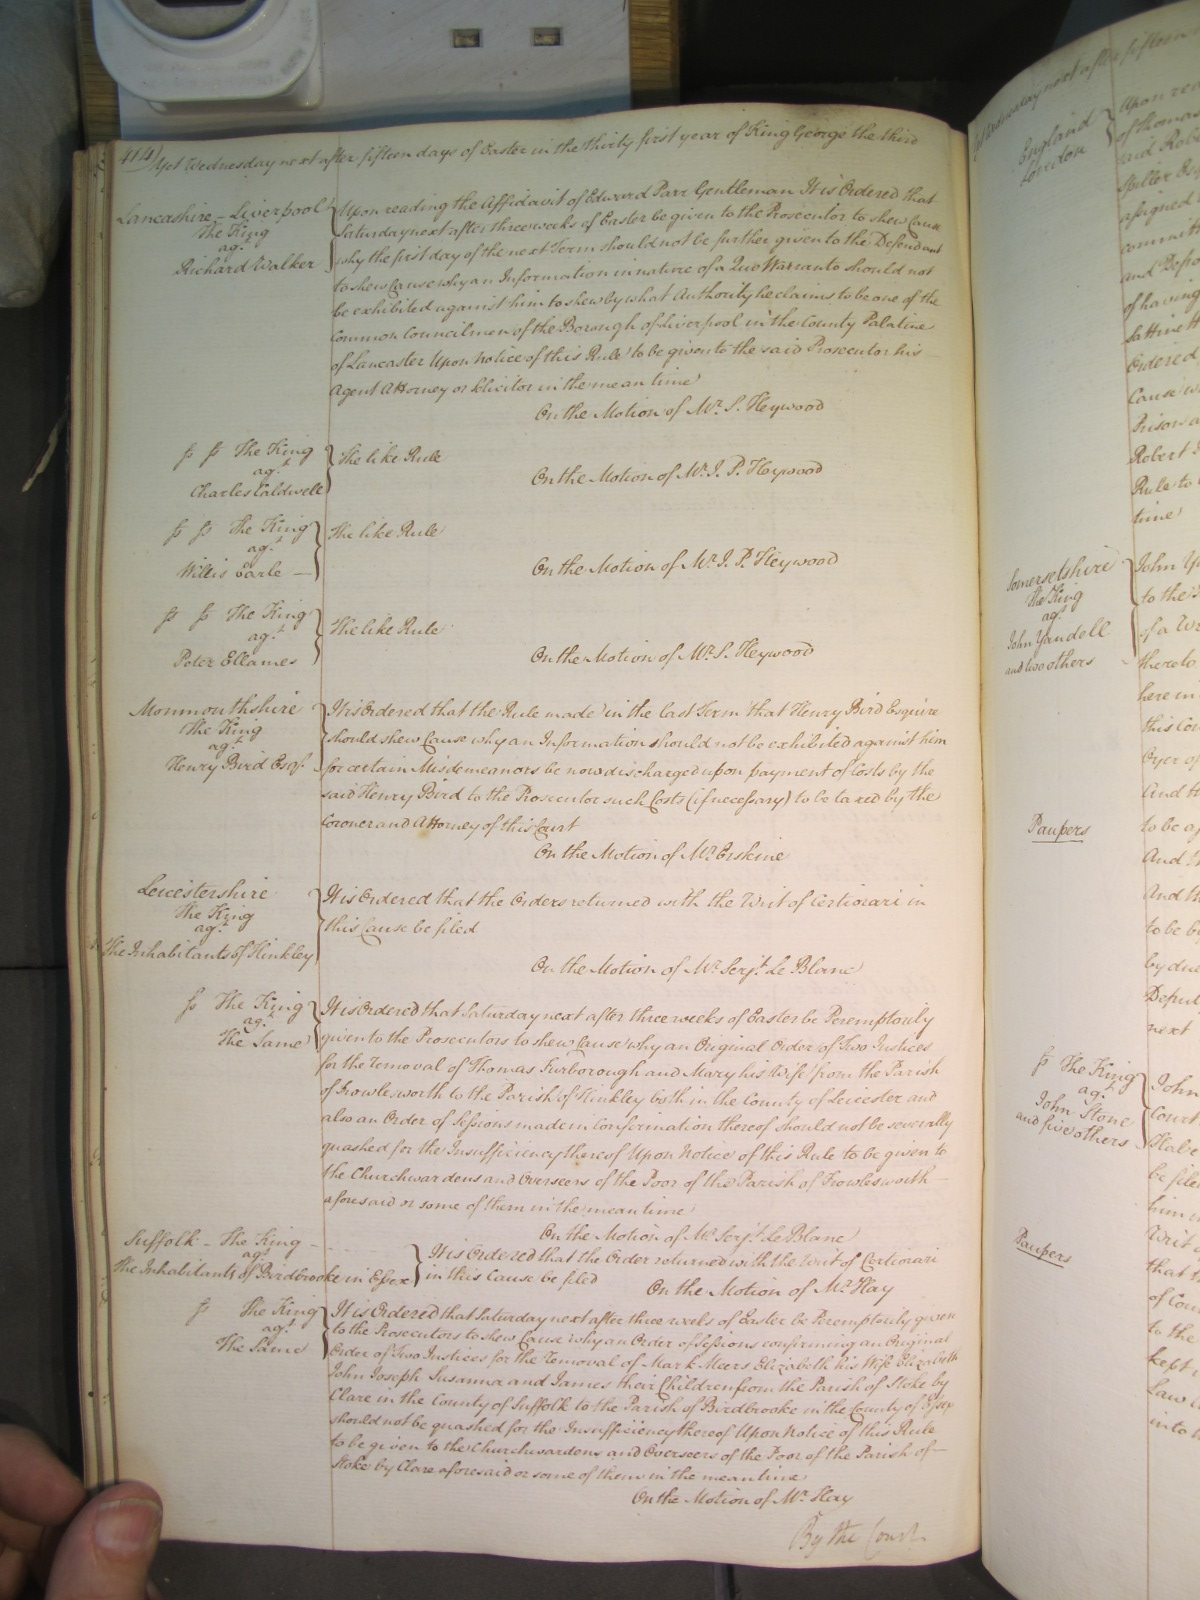 414) Yet Wednesday next after fifteen days of Easter in the thirty first year of King George the third
Lancashire – Liverpool
The King
agt
Richard Walker
Upon reading the Affidavit of Edward Parr Gentleman It is Ordered that
Saturday next after three weeks of Easter be given to the Prosecutor to shew Cause
why the first day of the next Term should not be further given to the Defendant
to shew Cause why an Information in nature of a Quo Warranto should not
be exhibited against him to shew by what Authority he claims to be one of the
Common Councilmen of the Borough of Liverpool in the County Palatine
of Lancaster Upon Notice of this Rule to be given to the said Prosecutor his
Agent Attorney or Solicitor in the mean time
On the Motion of Mr. S. Heywood
ss ss The King
agt
Charles Caldwell
The like Rule
On the Motion of Mr. J. P. Heywood
ss ss The King
agt
Willis Earle —
The like Rule
On the Motion of Mr. J. P. Heywood
ss ss The King
agt
Peter Ellames
The like Rule
On the Motion of Mr. S. Heywood
Monmouthshire
The King
agt
Henry Bird Esqr.
It is Ordered that the Rule made in the last Term that Henry Bird Esquire
should shew Cause why an Information should not be exhibited against him
for certain Misdemeanors be now discharged upon payment of Costs by the
said Henry Bird to the Prosecutor such Costs (if necessary) to be taxed by the
Coroner and Attorney of this Court
On the Motion of Mr. Erskine
Leicestershire
The King
agt
The Inhabitants of Hinkley
It is Ordered that the Orders returned with the Writ of Certiorari in
this Cause be filed
On the Motion of Mr. Serjt. Le Blanc
ss The King
agt
The Same
It is Ordered that Saturday next after three weeks of Easter be Peremptorily
given to the Prosecutors to shew Cause why an Original Order of Two Justices
for the Removal of Thomas Furborough and Mary his Wife from the Parish
of Frowlesworth to the Parish of Hinkley both in the County of Leicester and
also an Order of Sessions made in Confirmation thereof should not be severally
quashed for the Insufficiency thereof Upon Notice of this Rule to be given to
the Churchwardens and Overseers of the Poor of the Parish of Frowlesworth —
aforesaid or some of them in the mean time
On the Motion of Mr. Serjt. Le Blanc
Suffolk – The King –
agt
The Inhabitants of Birdbrooke in Essex
It is Ordered that the Order returned with the Writ of Certiorari
in this Cause be filed
On the Motion of Mr. Hay
ss The King
agt
The Same
It is Ordered that Saturday next after three weeks of Easter be Peremptorily given
to the Prosecutors to shew Cause why an Order of Sessions confirming an Original
Order of Two Justices for the Removal of Mark Meers Elizabeth his Wife Elizabeth
John Joseph Susanna and James their Children from the Parish of Stoke by
Clare in the County of Suffolk to the Parish of Birdbrooke in the County of Essex
should not be quashed for the Insufficiency thereof Upon Notice of this Rule
to be given to the Churchwardens and Overseers of the Poor of the Parish of —
Stoke by Clare aforesaid or some of them in the mean time
On the Motion of Mr. Hay
By the Court
Wednesday next after fifteen
England
London
Upon rea
of Thomas
and Rob
Spiller Esq
assigned
committ
and
of having
Ordered
Cause w
Prison a
Robert
Rule to
time
Somersetshire
The King
agt
John Yandell
and two others
John Y
to the
of a Wr
thereto
here in
this Co
Oyer of
And
Paupers
to be a
And
And th
to be b
by due
Deput
next
ss The King
agt
John Stone
and five others
John
Court
be filed
him
Writ
Paupers
that
of Cou
to the
kept
Law
into